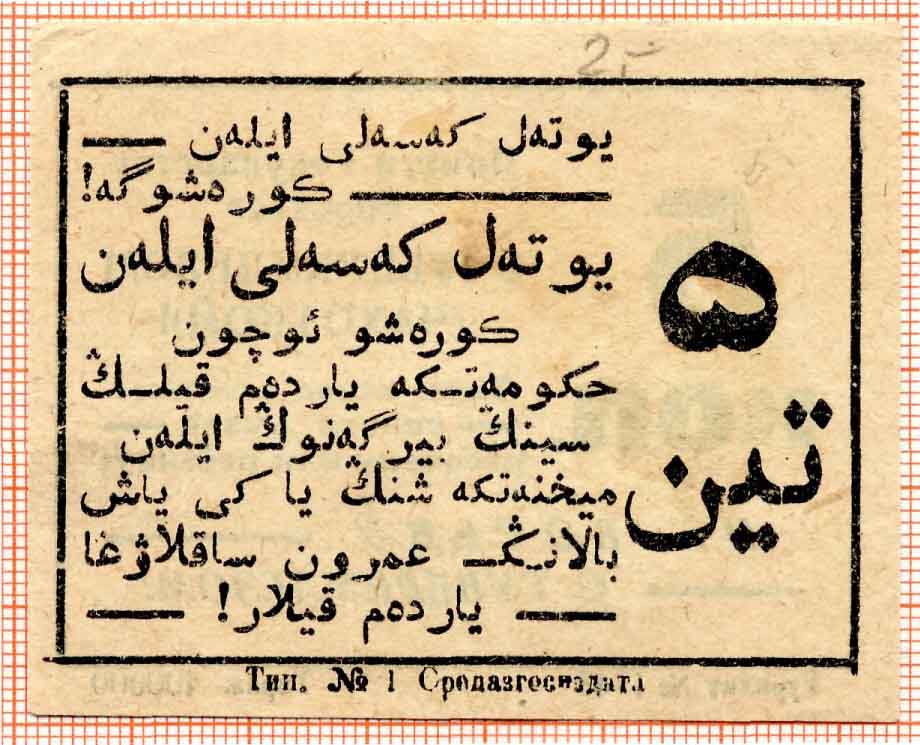 2-
يوتەل كەسەلى ايلەن
كورەشوگە!
يوتەل كەسەلى ايلەن
كورەشو ئوچون
حكومەتكە ياردەم قيلىڭ
سينىڭ بيرگەنوڭ ايلەن
ميخنەتكە شنڭ يا كى ياش
بالانىڭ عمرون ساقلاۋغا
ياردەم قيلار!
۵
تين
Тип. № 1 Средазгосиздата